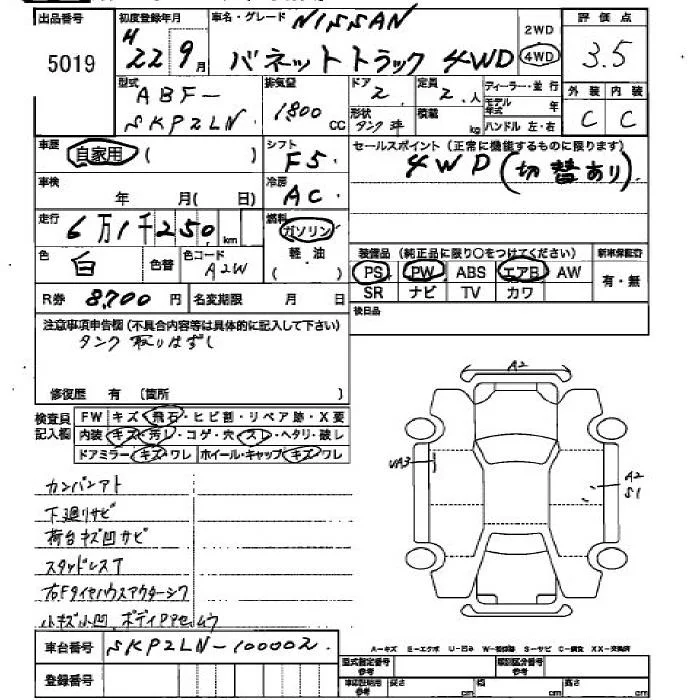 出品番号
5019
初度登録年月
H 22 9 月
車名・グレード
NISSAN
バネットトラック 4WD
2WD
4WD
評価点
3.5
外装 内装
C C
型式
ABF-
SKP2LN
排気量
1800 cc
ドア
2
定員
2 人
形状
積載
kg
ディーラー・並行
モデル年式 年
ハンドル 左・右
車歴
自家用 ( )
シフト
F5
セールスポイント (正常に機能するものに限ります)
4WD (切替あり)
車検
年 月( 日)
冷房
AC
走行
6万1千250 km
燃料
ガソリン
軽油
( )
色
白
色替
色コード
A2W
装備品 (純正品に限り○をつけてください)
PS PW ABS エアB AW
SR ナビ TV カワ
新車保証書
有・無
R券 8,700 円
名変期限 月 日
後日品
注意事項申告欄 (不具合内容等は具体的に記入して下さい)
タンク 取りはずし
修復歴 有 〔箇所 〕
検査員記入欄
FW キズ・飛石・ヒビ割・リペア跡・X要
内装 キズ・汚れ・コゲ・穴・スレ・ヘタリ・破レ
ドアミラー キズ・ワレ ホイール・キャップ キズ・ワレ
カンバンアト
下廻りサビ
荷台キズ凹サビ
スタッドレスT
右Fタイヤハウスアウターシワ
小キズ小凹
A2
UA3
A2
S1
車台番号 SKP2LN-100002
登録番号
A-キズ E-エクボ U-凹み W-補修跡 S-サビ C-腐食 XX-交換済
型式指定番号 参考
類別区分番号 参考
車認証明用 参考
長さ cm
幅 cm
高さ cm